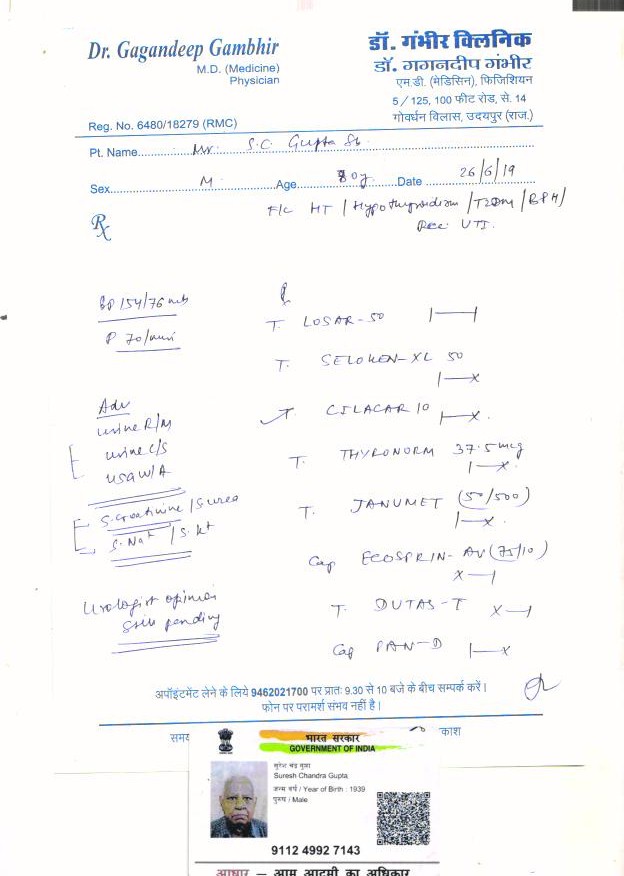 Dr. Gagandeep Gambhir
M.D. (Medicine)
Physician
Reg. No. 6480/18279 (RMC)
डॉ. गंभीर क्लिनिक
डॉ. गगनदीप गंभीर
एम.डी. (मेडिसिन), फिजिशियन
5 / 125, 100 फीट रोड, से. 14
गोवर्धन विलास, उदयपुर (राज.)
Pt. Name Mr. S.C. Gupta Sb.
Sex M Age 80y Date 26/6/19
Rx
F/c HT / Hypothyroidism / T2DM / BPH /
Rec UTI.
BP 154/76
P 70/min
Adv
urine R/M
urine C/S
USG W/A
S. Creatinine / S. urea
S. Na+ / S. K+
Urologist opinion
still pending
T. LOSAR-50 1—1
T. SELOKEN-XL 50
1—x
T. CILACAR 10 1—x
T. THYRONORM 37.5 mcg
1—x
T. JANUMET (50/500)
1—x
Cap ECOSPRIN-AV (75/10)
x—1
T. DUTAS-T x—1
Cap PAN-D 1—x
अपॉइंटमेंट लेने के लिये 9462021700 पर प्रातः 9.30 से 10 बजे के बीच सम्पर्क करें।
फोन पर परामर्श संभव नहीं है।
समय
भारत सरकार
GOVERNMENT OF INDIA
सुरेश चंद्र गुप्ता
Suresh Chandra Gupta
जन्म वर्ष / Year of Birth : 1939
पुरुष / Male
9112 4992 7143
आधार — आम आदमी का अधिकार